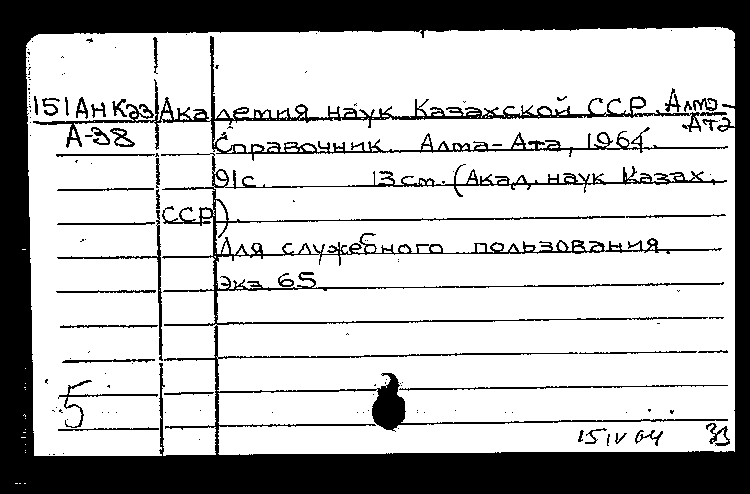 151 Ан Каз Академия наук Казахской ССР. Алма-
А-98 Ата
Справочник. Алма-Ата, 1964.
91 с. 13 см. (Акад. наук Казах.
ССР).
Для служебного пользования.
Экз 65.
5
15 IV 64